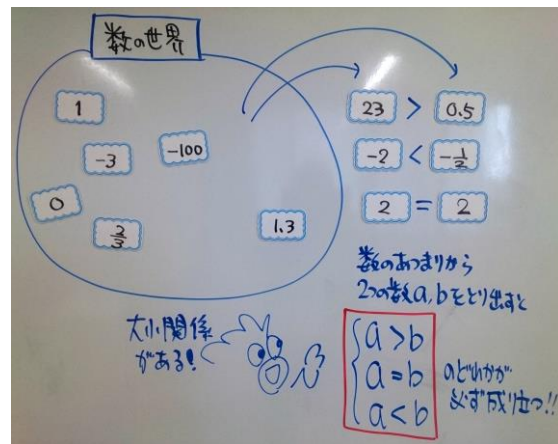 数の世界
1
-3
-100
0
2/3
1.3
23 > 0.5
-2 < -1/2
2 = 2
数のあつまりから
2つの数a,bをとり出すと
大小関係
がある!
a>b
a=b
a<b
のどれかが
必ず成り立つ!!